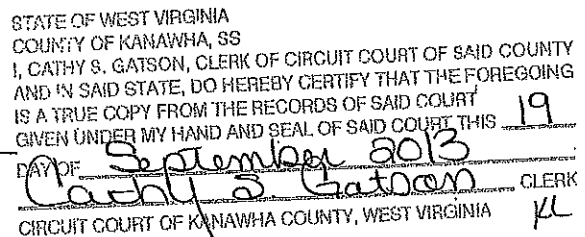 STATE OF WEST VIRGINIA
COUNTY OF KANAWHA, SS
I, CATHY S. GATSON, CLERK OF CIRCUIT COURT OF SAID COUNTY
AND IN SAID STATE, DO HEREBY CERTIFY THAT THE FOREGOING
IS A TRUE COPY FROM THE RECORDS OF SAID COURT
GIVEN UNDER MY HAND AND SEAL OF SAID COURT THIS 19
DAY OF September 2013
Cathy S. Gatson CLERK
CIRCUIT COURT OF KANAWHA COUNTY, WEST VIRGINIA